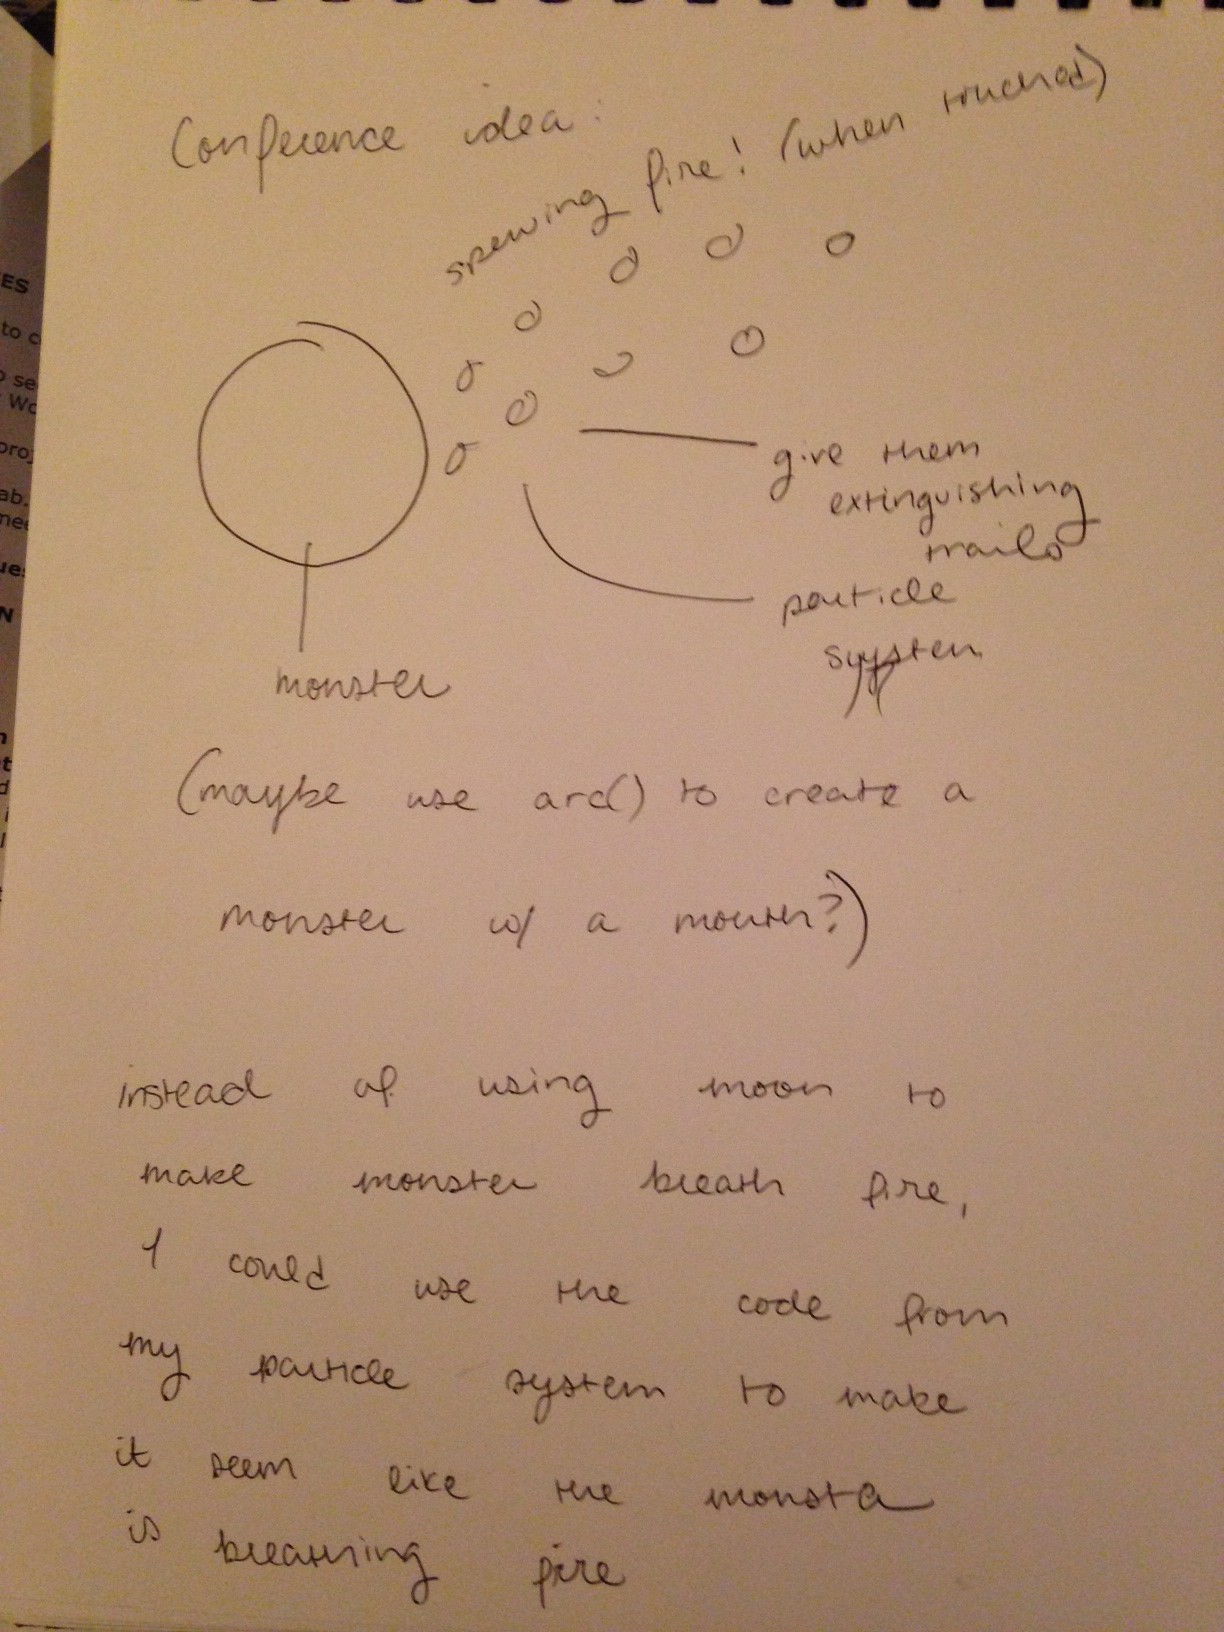 Conference idea:
spewing fire! (when touched)
give them
extinguishing
trails
particle
system
monster
(maybe use arc() to create a
monster w/ a mouth?)
instead of using moon to
make monster breath fire,
I could use the code from
my particle system to make
it seem like the monsta
is breathing fire
ES
to c
se
Wo
proj
ab.
mee
ues
N